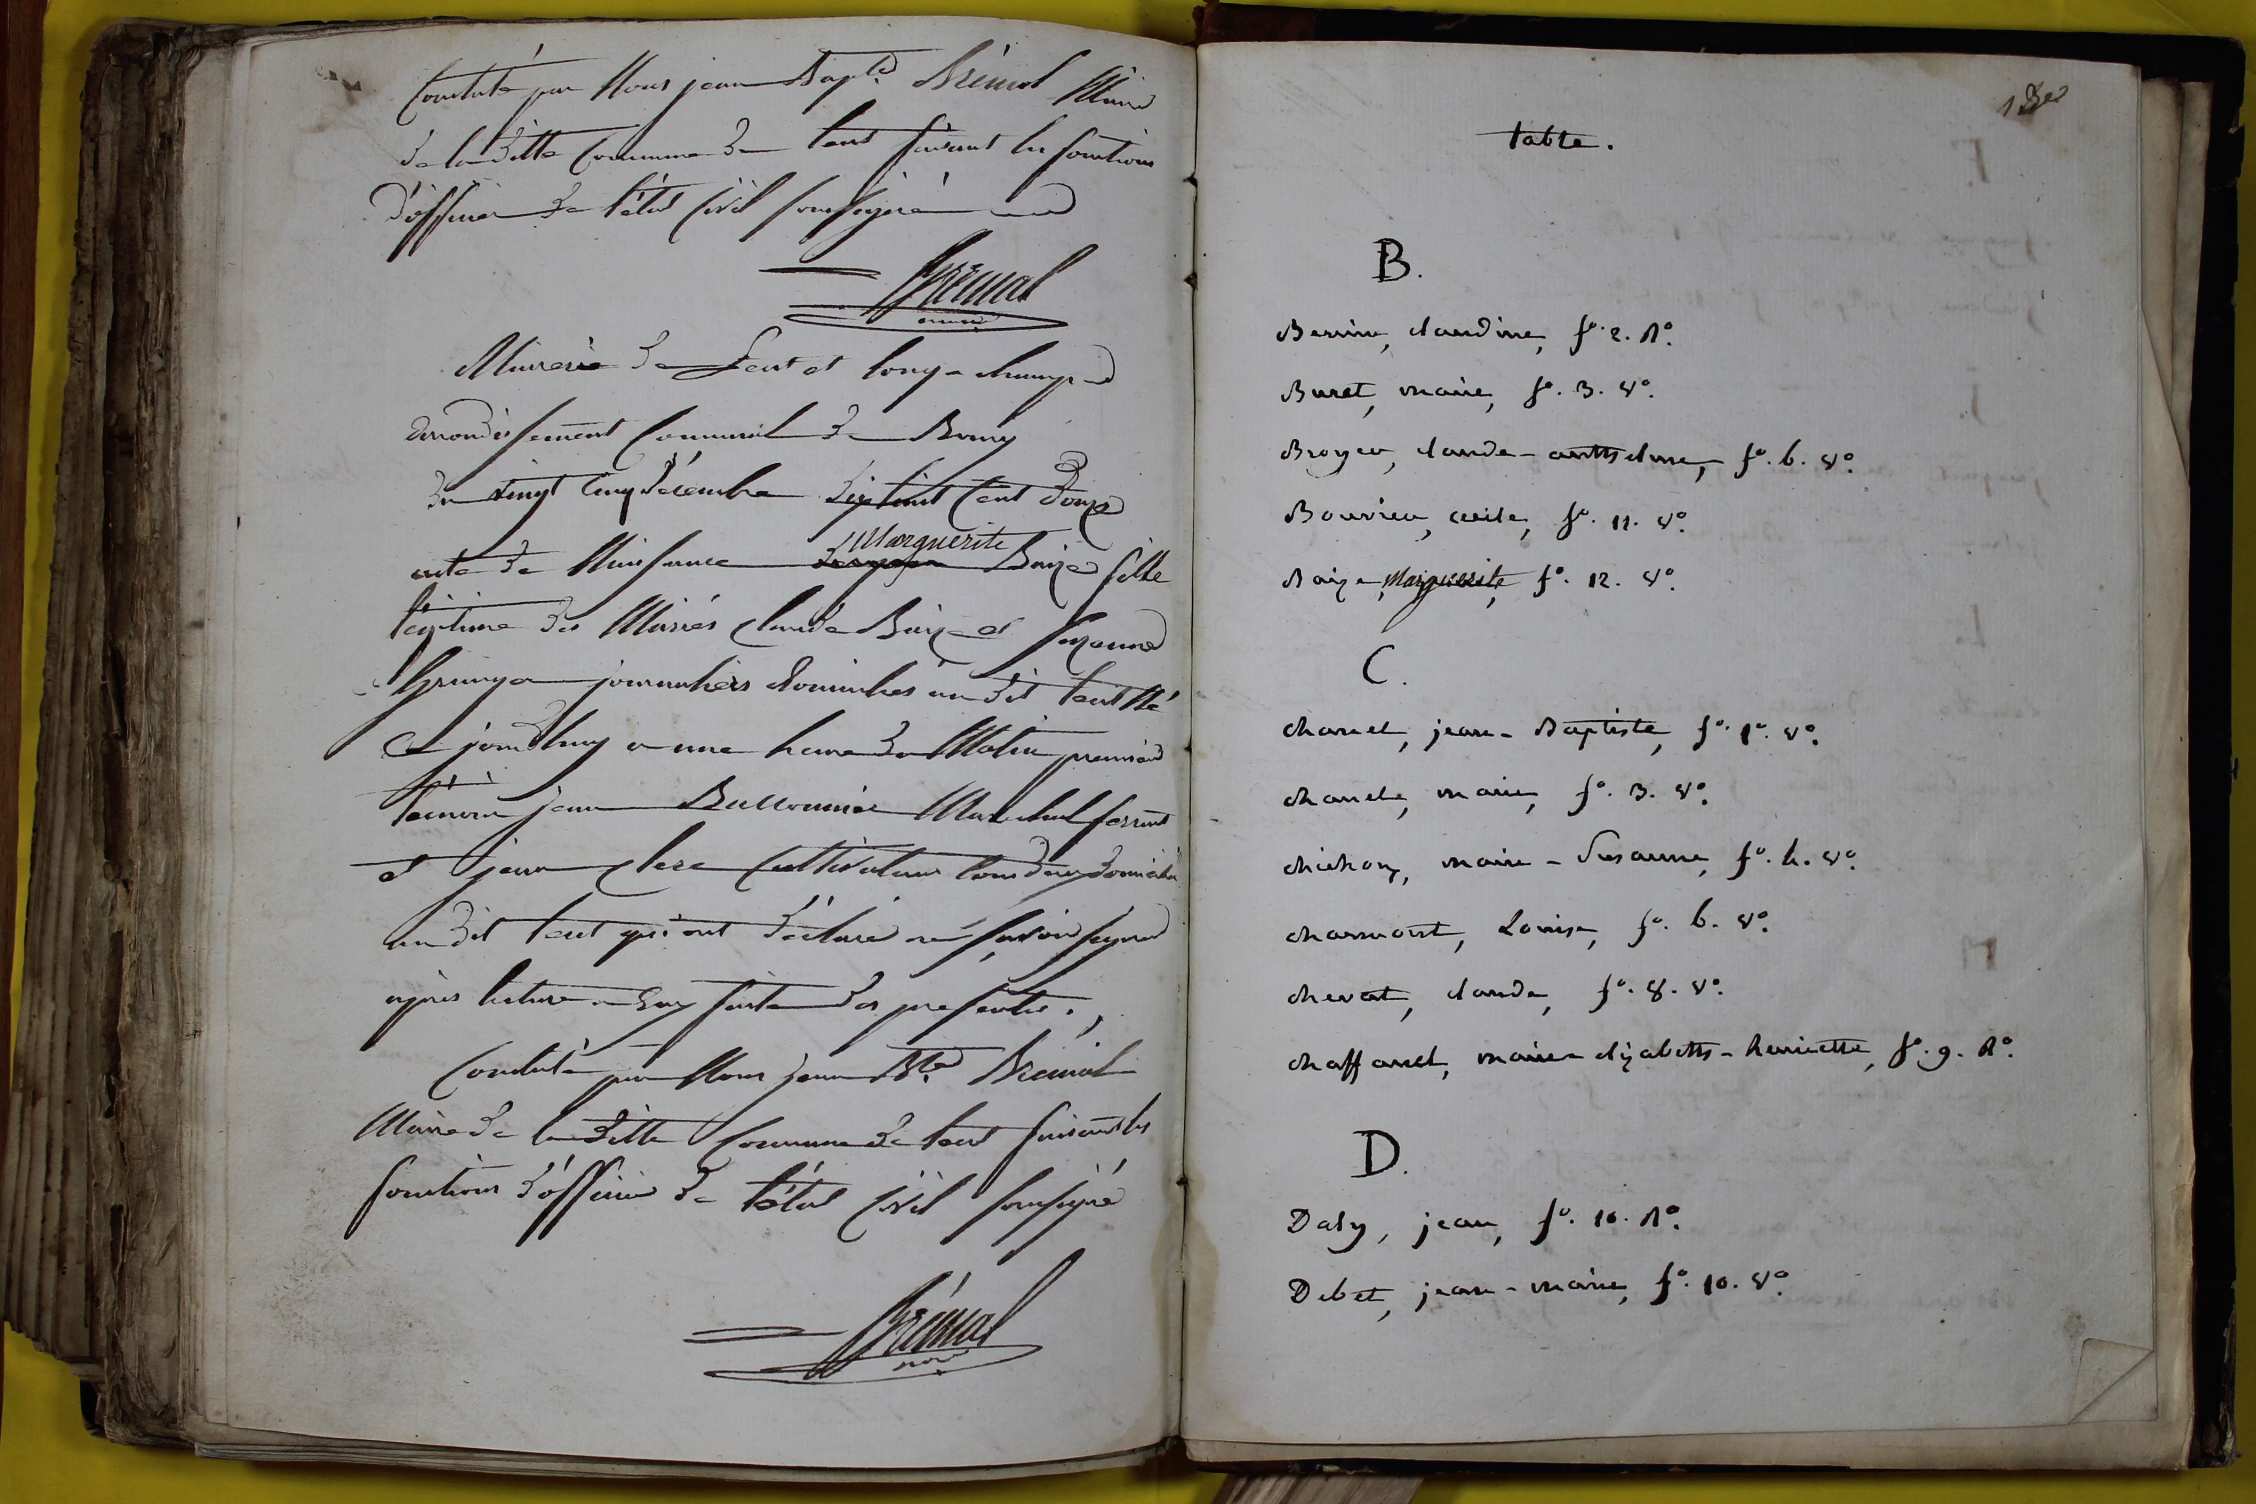 Constaté par Nous jean Bapte. Brémal Maire
de la ditte Commune de lent faisant les fonctions
d'officier de l'état Civil soussigné
Brémal
maire
Mairerie de Lent et longchamp
arrondissement Communal de Bourg
du vingt cinq décembre dix huit Cent douze
acte de Naissance de Marguerite Baize fille
légitime des Mariés Claude Baize et Suzanne
Grange journaliers domiciliés au dit lent Né
ce jourd'huy a une heure du Matin premier
témoin jean Marechal ferrant
et jean Clerc Cultivateur tous deux domiciliés
au dit lent qui ont déclaré ne savoir signer
après lecture a eux faite des presentes.
Constaté par Nous jean Bte. Brémal
Maire de la ditte Commune de lent faisant les
fonctions d'officier de l'état Civil soussigné
Brémal
maire
table.
B.
claudine, fo. 2. Ro.
Buret, marie, fo. 3. vo.
Broyer, claude-anthelme, fo. 6. vo.
Bouvier, cecile, fo. 11. vo.
Baize, Marguerite, fo. 12. vo.
C.
Chanel, jean-Baptiste, fo. 1o. vo.
Chanel, marie, fo. 3. vo.
Chichon, marie-Susanne, fo. 4. vo.
Charmont, Louise, fo. 6. vo.
Chevat, claude, fo. 8. vo.
Chaffanel, marie-elizabeth-henriette, fo. 9. Ro.
D.
Daly, jean, fo. 10. Ro.
Debet, jean-marie, fo. 10. vo.